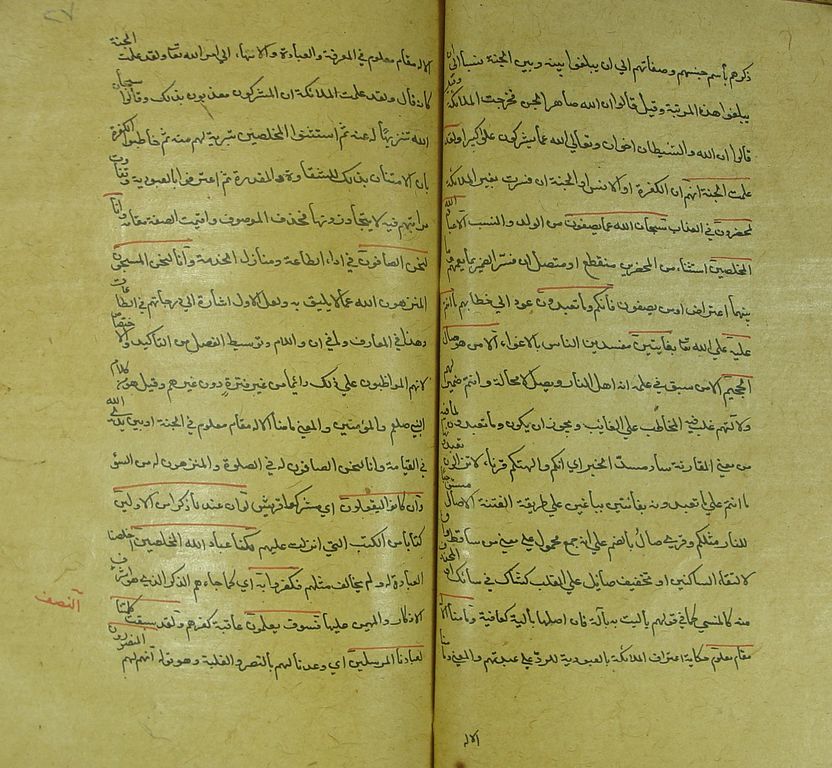 ذكرهم بأسم جنسهم وصفاتهم الي ان يبلغوا بينه وبين الجنة نسبا الي ان
يبلغوا هذه المرتبة وقيل قالوا ان الله صاهر الجن فخرجت الملائكة وقيل
قالوا ان الله والشيطان اخوان وتعالي الله عما يشركون علوا كبيرا ولقد
علمت الجنة انهم ان الكفرة او الانس او الجنة ان فسرت بغير الملائكة
لمحضرون في العذاب سبحان الله عما يصفون من الولد والنسب الا عباد الله
المخلصين استثناء من المحضرين منقطع او متصل ان فسر الضمير بما يعمهم وما
بينهما اعتراض او من يصفون فانكم وما تعبدون عود الي خطابهم ما انتم
عليه علي الله تعا بفاتنين مفسدين الناس بالاغواء الا من هو صال
الجحيم الا من سبق في علمه انه اهل النار ويصلي لا محالة وانتم ضمير لهم
ولآلهتهم غلب فيه المخاطب علي الغايب ويجوز ان يكون وما تعبدون لما فيه
من معني المقارنة ساد مسد الخبر اي انكم والهتكم قرناء لا تزالون تعبدونها
ما انتم علي ما تعبدونه بفاتنين بباعثين علي طريقة الفتنة الا ضال مستوجبا
للنار مثلكم وقرئ صال بالضم علي انه جمع محمول علي معني من ساقط واوه
لالتقاء الساكنين او تخفيف صايل علي القلب كشاك في شائك او المحذوف
منه كالمنسي كما في قولهم باليت به بالة فان اصلها بالية كعافية وما منا الا له
مقام معلوم حكاية اعتراف الملائكة بالعبودية للرد علي عبدتهم والمعني وما منا
الا له
الا له مقام معلوم في المعرفة والعبادة والانتهاء الي امر الله تعا ولقد علمت الجنة
كأنه قال ولقد علمت الملائكة ان المشركين معذبون بذلك وقالوا سبحان
الله تنزيها له عنه ثم استثنوا المخلصين تبرية لهم منه ثم خاطبوا الكفرة
بان الافتنان بذلك للشقاوة المقدرة ثم اعترفوا بالعبودية وتفاوت
مراتبهم فيه لا يتجاوزونها فحذف الموصوف واقيمت الصفة مقامه وانا
لنحن الصافون في اداء الطاعة ومنازل الخدمة وانا لنحن المسبحون
المنزهون الله عما لا يليق به ولعل الاول اشارة الي درجاتهم في الطاعات
وهذا في المعارف وما في ان واللام وتوسيط الفصل من التأكيد والاختصاص
لانهم المواظبون علي ذلك دائما من غير فترة دون غيرهم وقيل هو كلام
النبي صلعم والمؤمنين والمعني ما منا الا له مقام معلوم في الجنة او بين يدي الله
في القيامة وانا لنحن الصافون له في الصلوة والمنزهون له من السوء
وان كانوا ليقولون اي مشركوا قريش لو ان عندنا ذكرا من الاولين
كتابا من الكتب التي انزلت عليهم لكنا عباد الله المخلصين اخلصنا
العبادة له ولم يخالف مثلهم فكفروا به اي لما جاءهم الذكر الذي هو اشرف
الاذكار والمهيمن عليها فسوف يعلمون عاقبة كفرهم ولقد سبقت كلمتنا
لعبادنا المرسلين اي وعدنا لهم بالنصر والغلبة وهو قوله انهم لهم المنصورون
النصف